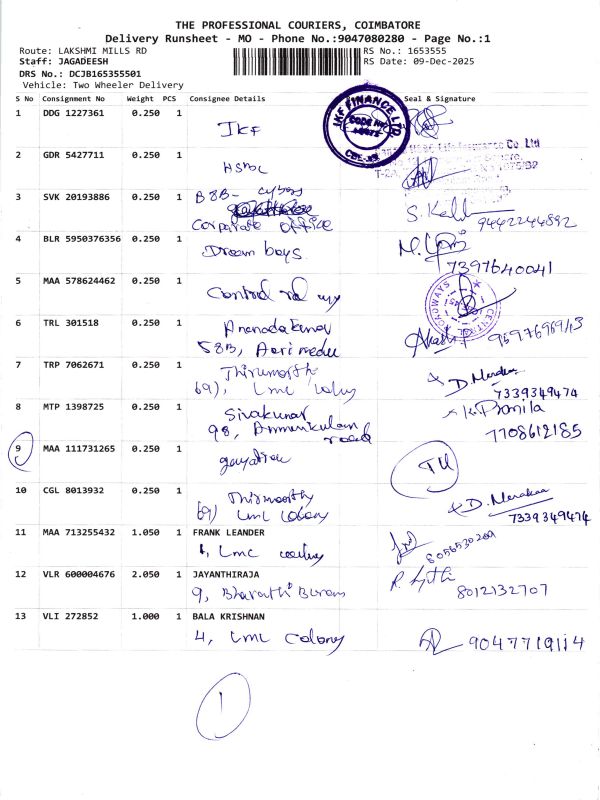 THE PROFESSIONAL COURIERS, COIMBATORE
Delivery Runsheet - MO - Phone No.:9047080280 - Page No.:1
Route: LAKSHMI MILLS RD
RS No.: 1653555
Staff: JAGADEESH
RS Date: 09-Dec-2025
DRS No.: DCJB165355501
Vehicle: Two Wheeler Delivery
S No Consignment No Weight PCS Consignee Details Seal & Signature
1 DDG 1227361 0.250 1 IKF
IKF FINANCE LTD.
2 GDR 5427711 0.250 1 HSBC
3 SVK 20193886 0.250 1 BSB- cyber
Corporate office
9442244892
4 BLR 5950376356 0.250 1 Dream boys
7397640041
5 MAA 578624462 0.250 1
CENTRAL ROADWAYS
6 TRL 301518 0.250 1
58B,
7 TRP 7062671 0.250 1 Thirumoorthy
69), LMC Colony
7339349474
8 MTP 1398725 0.250 1 Sivakumar
98, Ammankulam road
Pramila
7708612185
9 MAA 111731265 0.250 1 gayatree
10 CGL 8013932 0.250 1 Thirmoorthy
69) LML Colony
7339349474
11 MAA 713255432 1.050 1 FRANK LEANDER
1, LMC colony
8056530269
12 VLR 600004676 2.050 1 JAYANTHIRAJA
9, Bharathi
8012132707
13 VLI 272852 1.000 1 BALA KRISHNAN
4, LML Colony
9047719114
1